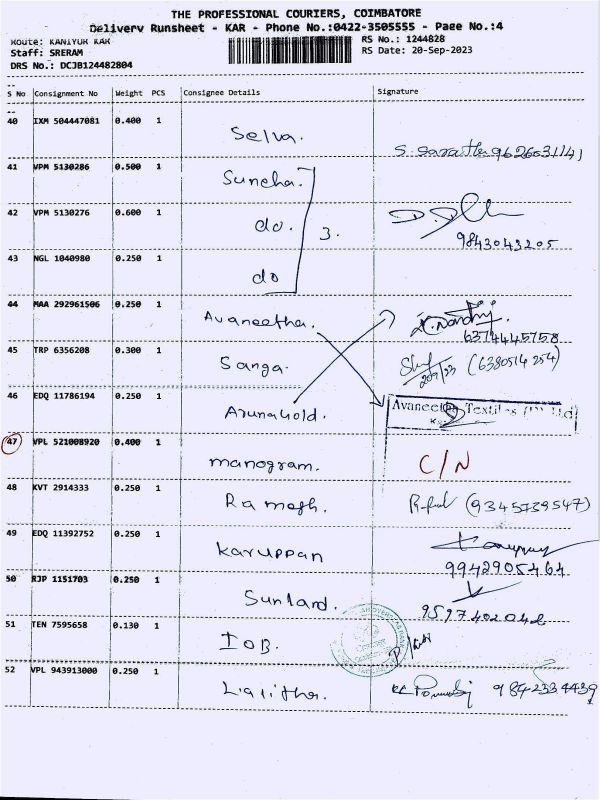 THE PROFESSIONAL COURIERS, COIMBATORE
Delivery Runsheet - KAR - Phone No.:0422-3505555 - Page No.:4
Route: KANIYUR KAR
RS No.: 1244828
Staff: SRERAM
RS Date: 20-Sep-2023
DRS No.: DCJB124482804
S No Consignment No Weight PCS Consignee Details Signature
40 IXM 504447081 0.400 1
Selva.
9626031141
41 VPM 5130286 0.500 1
Suncha.
42 VPM 5130276 0.600 1
do. 3.
9843043205
43 NGL 1040980 0.250 1
do
44 MAA 292961506 0.250 1
Avaneetha.
6374445758
45 TRP 6356208 0.300 1
Sanga. (6380514254)
20/9/23
46 EDQ 11786194 0.250 1
Avaneetha Textiles (P) Ltd
Arunagold.
47 VPL 521008920 0.400 1
manogram. C/N
48 KVT 2914333 0.250 1
Ramesh. (9345739547)
49 EDQ 11392752 0.250 1
Karuppan
9942905464
50 RJP 1151703 0.250 1
Sunlard. 9597402042
51 TEN 7595658 0.130 1
IOB.
52 VPL 943913000 0.250 1
Lalitha. 9842334439